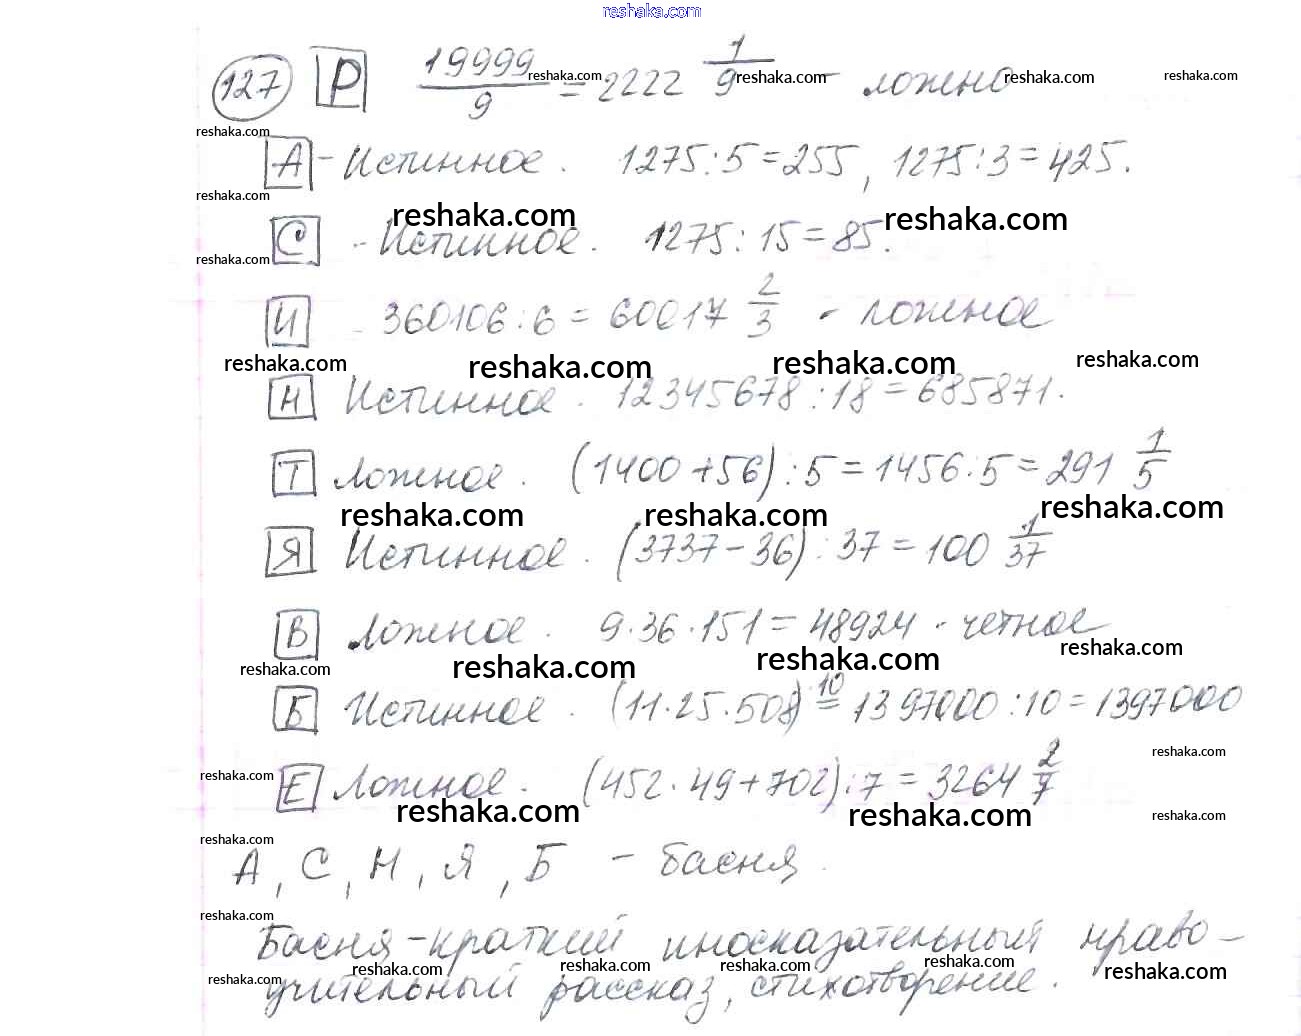 reshaka.com
127 Р 19999/9 = 2222 1/9 - ложно
reshaka.com reshaka.com reshaka.com reshaka.com
reshaka.com
А - Истинное. 1275:5=255, 1275:3=425.
reshaka.com
reshaka.com reshaka.com
С - Истинное. 1275:15=85.
reshaka.com
И 360106:6=60017 2/3 - ложное
reshaka.com reshaka.com reshaka.com reshaka.com
Н Истинное. 12345678:18=685871.
Т Ложное. (1400+56):5=1456:5=291 1/5
reshaka.com reshaka.com reshaka.com
Я Истинное. (3737-36):37=100 1/37
В Ложное. 9·36·151=48924 - четное
reshaka.com reshaka.com reshaka.com reshaka.com
Б Истинное. (11·25·508):10=13970000:10=1397000
reshaka.com
Е Ложное. (452·49+702):7=3264 2/7
reshaka.com reshaka.com reshaka.com reshaka.com
reshaka.com
А, С, Н, Я, Б - басня.
reshaka.com
Басня - краткий иносказательный нраво-
reshaka.com reshaka.com reshaka.com reshaka.com reshaka.com reshaka.com
учительный рассказ, стихотворение.